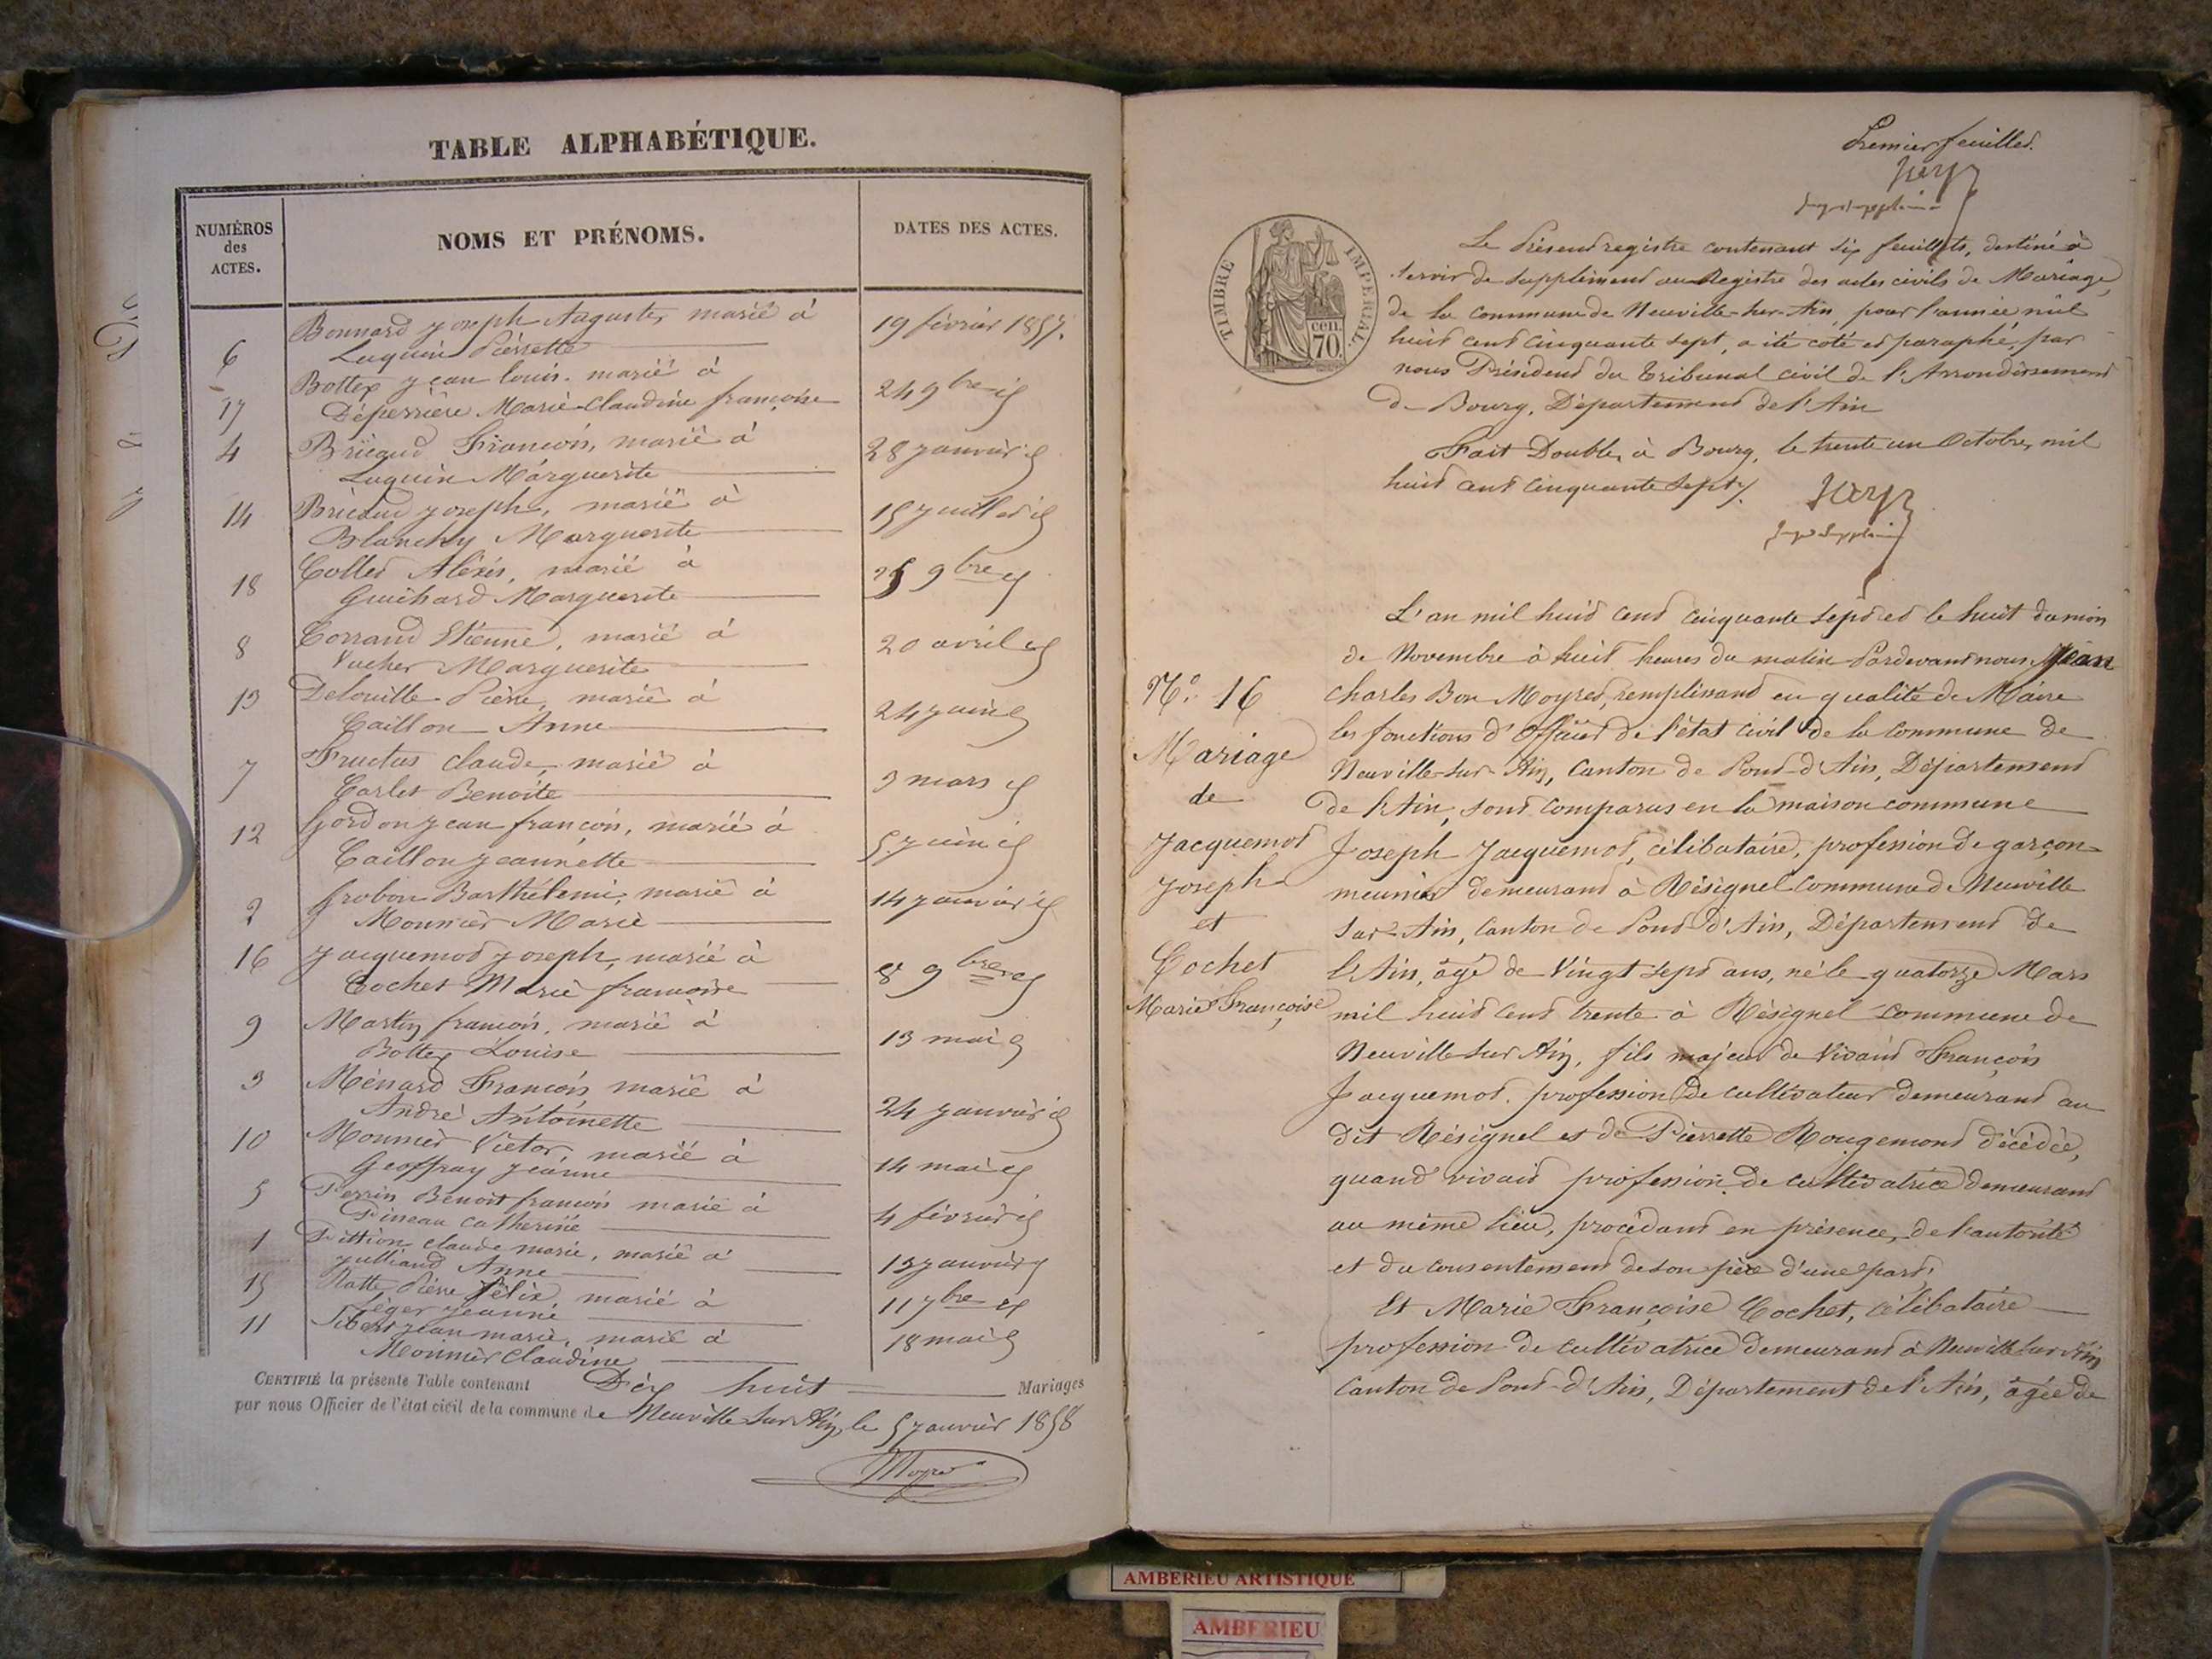 TABLE ALPHABÉTIQUE.
NUMÉROS
des
ACTES.
NOMS ET PRÉNOMS.
DATES DES ACTES.
6 Bonnard Joseph Auguste, marié à
Luquin Pierrette
19 février 1857.
17 Bottex Jean louis. marié à
Déperrière Marie Claudine françoise
24 9bre id
4 Bricaud François, marié à
Luquin Marguerite
28 Janvier id
14 Bricaud Joseph, marié à
Blanchy Marguerite
15 Juillet id
18 Collet Aléxis, marié à
Guichard Marguerite
25 9bre id
8 Corrand Etienne, marié à
Vucher Marguerite
20 avril id
13 Delouille Pierre, marié à
Caillon Anne
24 Juin id
7 Fructus claude, marié à
Carlet Benoite
3 mars id
12 Gordon Jean françois, marié à
Caillon Jeannette
5 Juin id
2 Grobon Barthélemi, marié à
Mounier Marie
14 Janvier id
16 Jacquemot Joseph, marié à
Cochet Marie françoise
8 9bre id
9 Martin françois, marié à
Bottex Louise
13 mai id
3 Ménard François, marié à
André Antoinette
24 Janvier id
10 Mounier Victor, marié à
Geoffray Jeanne
14 mai id
5 Perrin Benoit françois marié à
Pineau Catherine
4 février id
1 Pittion claude marie, marié à
Julliand Anne
13 Janvier id
15 Ratte Pierre Félix marié à
Léger Jeanne
11 7bre id
11 Sibert Jean marie, marié à
Mounier Claudine
18 mai id
CERTIFIÉ la présente Table contenant Dix huit Mariages
par nous Officier de l'état civil de la commune de Neuville sur Ain, le 5 Janvier 1858
Moyret
Premier feuillet.
TIMBRE IMPÉRIAL
cen.
70.
Le Présent registre contenant six feuillets, destiné à
servir de supplément au Registre des actes civils de Mariage,
de la commune de Neuville-sur-Ain, pour l'année mil
huit cent cinquante sept, a été coté et paraphé, par
nous Président du Tribunal civil de l'Arrondissement
de Bourg, Département de l'Ain
Fait Double, à Bourg, le trente un Octobre, mil
huit cent cinquante sept.
N.° 16
Mariage
de
Jacquemot
Joseph
et
Cochet
Marie Françoise
L'an mil huit cent cinquante sept et le huit du mois
de Novembre à huit heures du matin Pardevant nous, Jean
Charles Bon Moyret, remplissant en qualité de Maire
les fonctions d'Officier de l'état civil de la commune de
Neuville-sur-Ain, Canton de Pont-d'Ain, Département
de l'Ain, sont comparus en la maison commune
Joseph Jacquemot, célibataire, profession de garçon-
meunier demeurant à Résignel commune de Neuville
sur-Ain, Canton de Pont d'Ain, Département de
l'Ain, âgé de vingt sept ans, né le quatorze Mars
mil huit cent trente à Résignel commune de
Neuville sur Ain, fils majeur de vivant François
Jacquemot. profession de cultivateur demeurant au
dit Résignel et de Pierrette Rougemont décédée,
quand vivait profession de cultivatrice demeurant
au même lieu, procédant en présence, de l'autorité
et du consentement de son père d'une part;
Et Marie Françoise Cochet, célibataire
profession de cultivatrice demeurant à Neuville sur Ain
Canton de Pont-d'Ain, Département de l'Ain, âgée de
AMBERIEU ARTISTIQUE
AMBERIEU